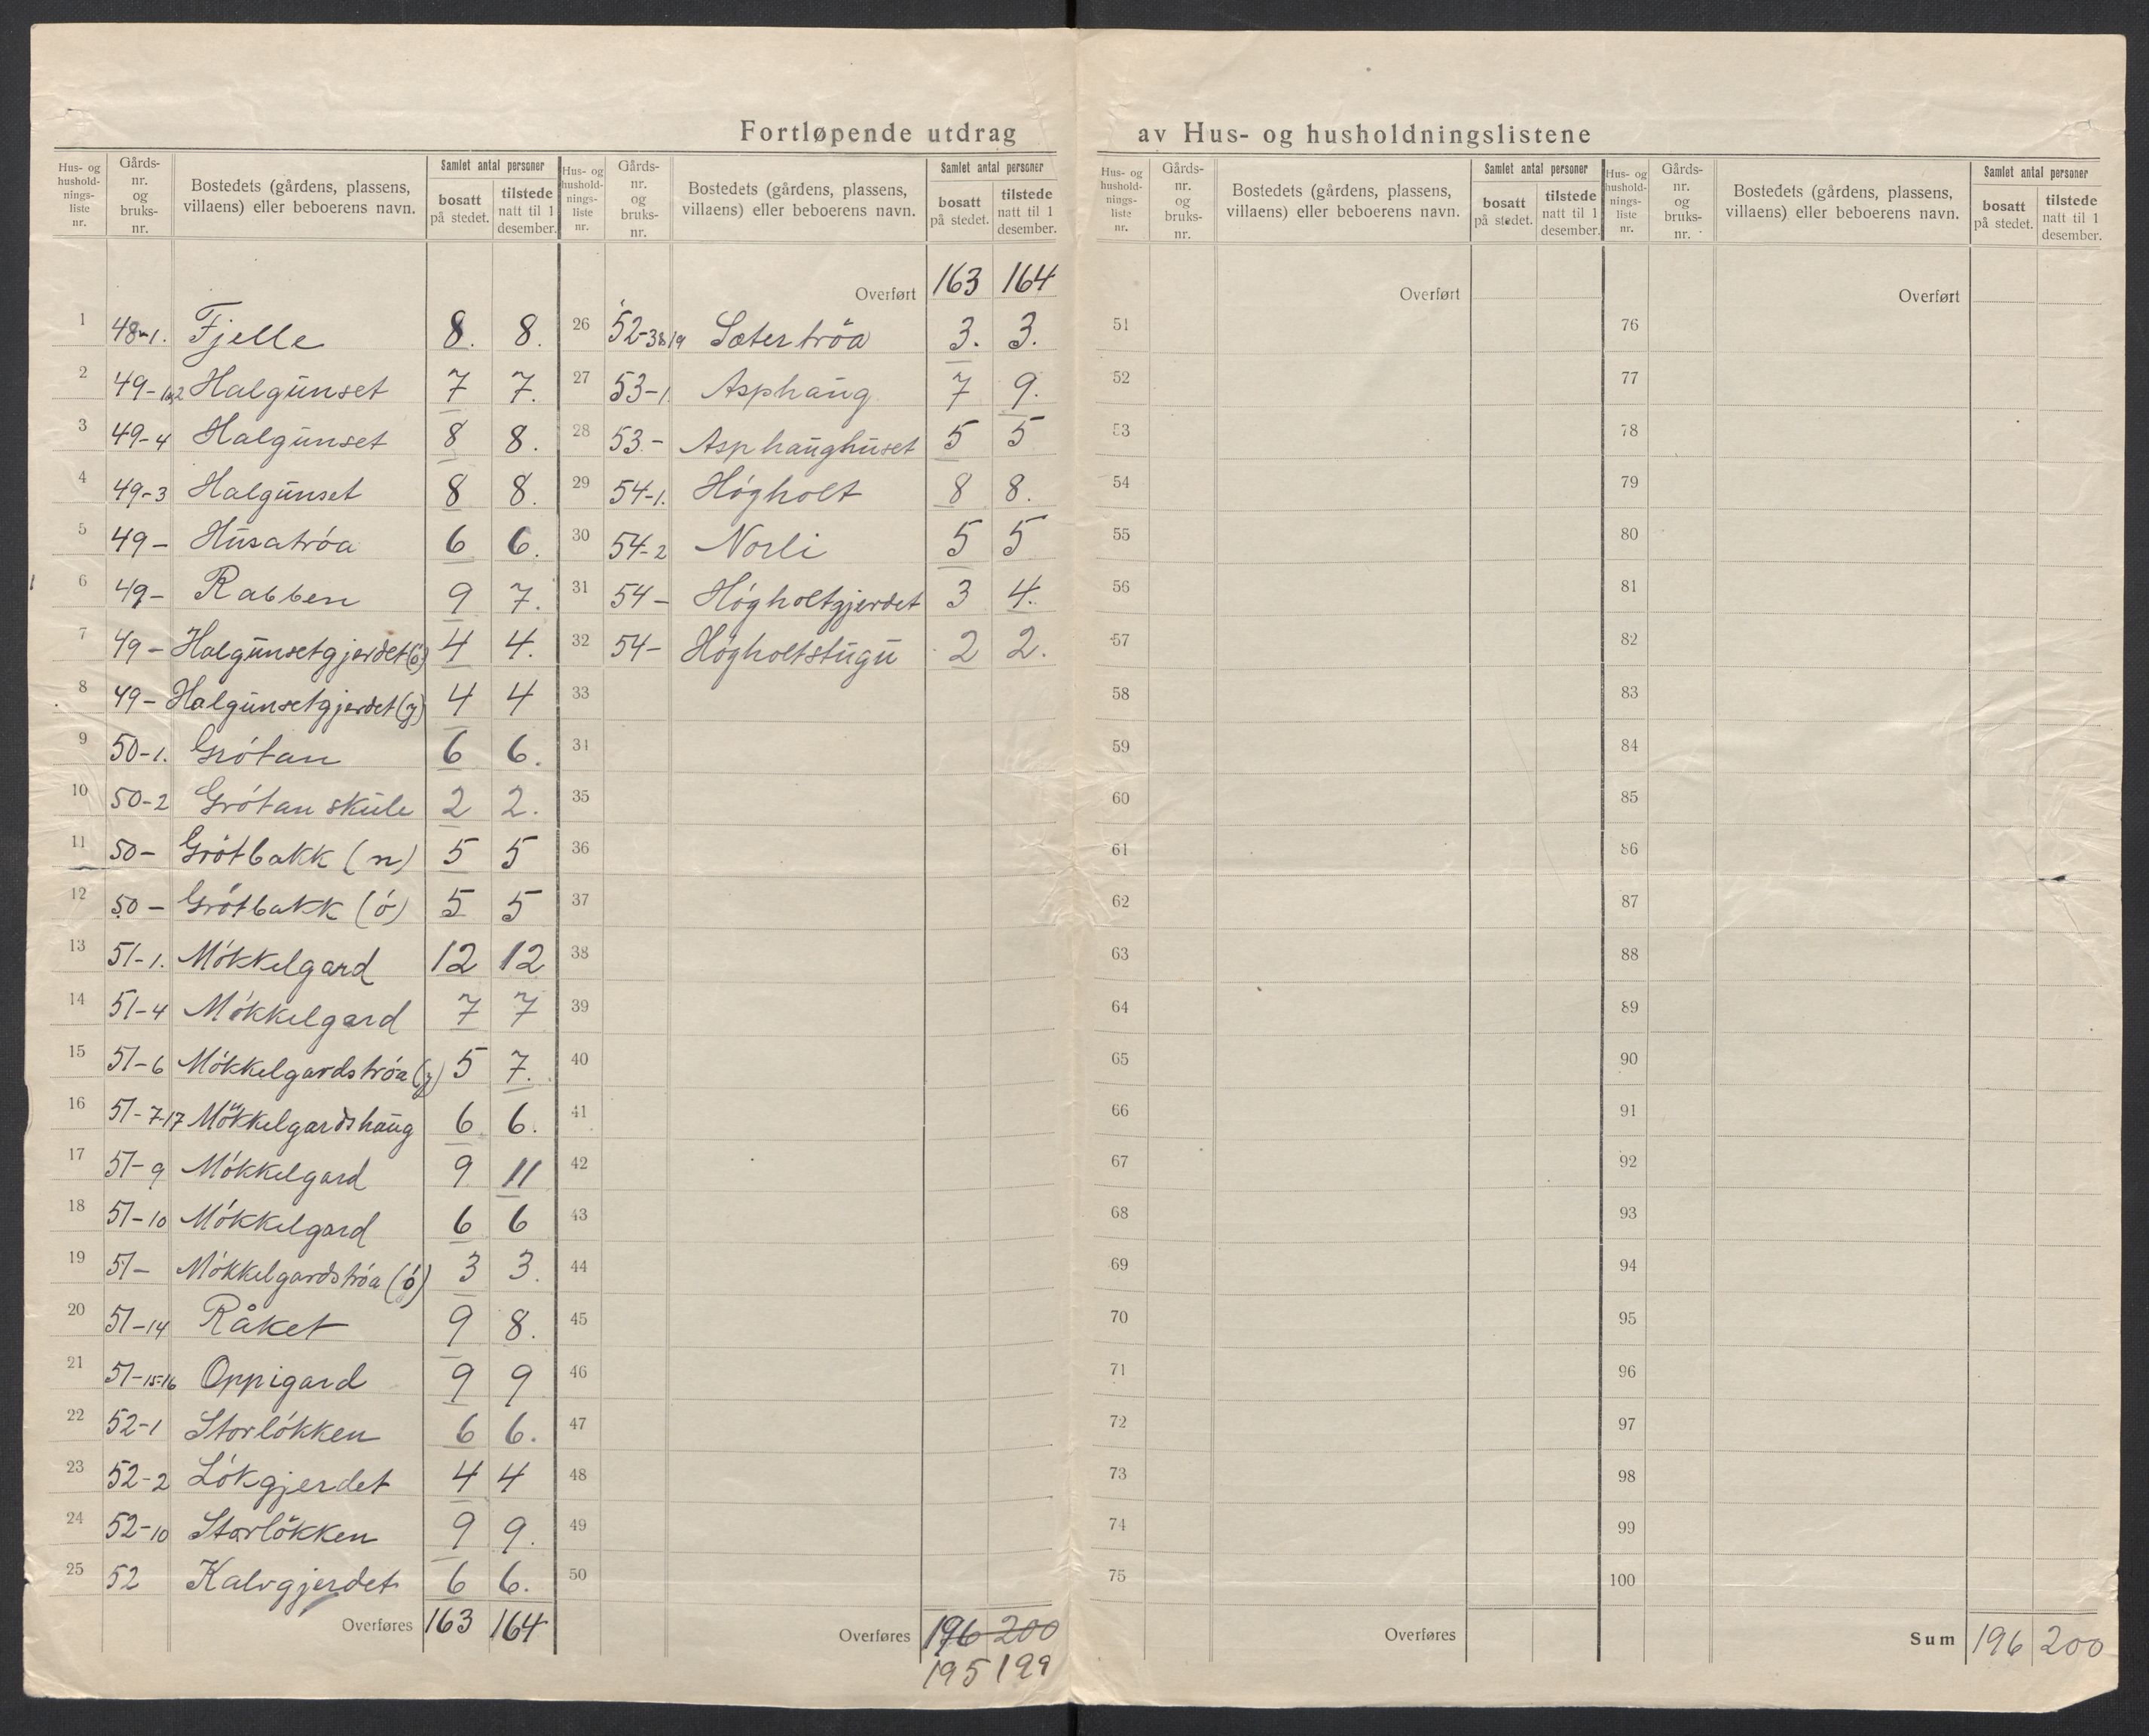 Fortløpende utdrag av Hus- og husholdningslistene
Hus- og hushold-nings-liste nr. | Gårds-nr. og bruks-nr. | Bostedets (gårdens, plassens, villaens) eller beboerens navn. | Samlet antal personer | bosatt på stedet. | tilstede natt til 1 desember.
1 48-1. Fjelle 8. 8.
2 49-1,2 Halgunset 7 7.
3 49-4 Halgunset 8 8.
4 49-3 Halgunset 8 8.
5 49- Husatróa 6 6.
6 49- Rabben 9 7.
7 49- Halgunsetgjerdet (ó) 4 4.
8 49- Halgunsetgjerdet (y) 4 4
9 50-1. Grótan 6 6.
10 50-2 Grótan skule 2 2.
11 50- Grótbakk (n) 5 5
12 50- Grótbakk (ó) 5 5
13 51-1. Mókkelgard 12 12
14 51-4 Mókkelgard 7 7
15 51-6 Mókkelgardstróa (y) 5 7.
16 51-7-17 Mökkelgardshaug 6 6.
17 51-9 Mókkelgard 9 11
18 51-10 Mókkelgard 6 6
19 51- Mókkelgardstróa (ó) 3 3.
20 51-14 Råket 9 8.
21 51-15-16 Oppigard 9 9
22 52-1 Storlókken 6 6.
23 52-2 Lókgjerdet 4 4
24 52-10 Storlökken 9 9.
25 52 Kalvgjerdet 6 6.
Overføres 163 164
Hus- og hushold-nings-liste nr. | Gårds-nr. og bruks-nr. | Bostedets (gårdens, plassens, villaens) eller beboerens navn. | Samlet antal personer | bosatt på stedet. | tilstede natt til 1 desember.
Overført 163 164
26 52- Sætertröa 3. 3.
27 53-1 Asphaug 7 9.
28 53- Asphaughuset 5 5
29 54-1. Hógholt 8 8.
30 54-2 Norli 5 5
31 54- Hógholtgjerdet 3 4.
32 54- Hógholtstugu 2 2.
33
34
35
36
37
38
39
40
41
42
43
44
45
46
47
48
49
50
Overføres 196 200
195 199
Hus- og hushold-nings-liste nr. | Gårds-nr. og bruks-nr. | Bostedets (gårdens, plassens, villaens) eller beboerens navn. | Samlet antal personer | bosatt på stedet. | tilstede natt til 1 desember.
Overført
51
52
53
54
55
56
57
58
59
60
61
62
63
64
65
66
67
68
69
70
71
72
73
74
75
Overføres
Hus- og hushold-nings-liste nr. | Gårds-nr. og bruks-nr. | Bostedets (gårdens, plassens, villaens) eller beboerens navn. | Samlet antal personer | bosatt på stedet. | tilstede natt til 1 desember.
Overført
76
77
78
79
80
81
82
83
84
85
86
87
88
89
90
91
92
93
94
95
96
97
98
99
100
Sum 196 200